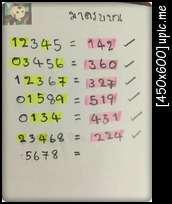 มาตรบวก
12345 = 142 ✓
03456 = 360 ✓
12367 = 327 ✓
01589 = 519 ✓
0134 = 431 ✓
23468 = 224 ✓
5678 =
[450x600] upic.me